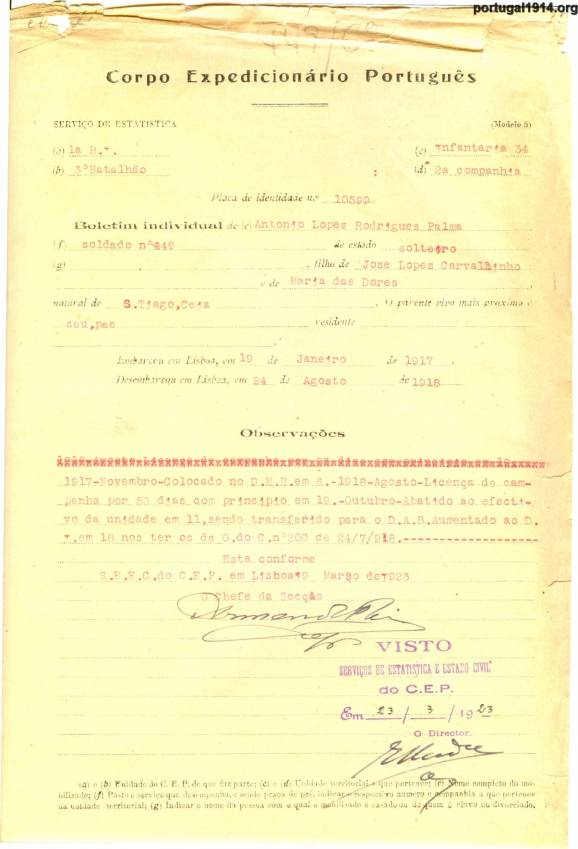 portugal1914.org
Corpo Expedicionário Português
SERVIÇO DE ESTATISTICA (Modelo 5)
(a) 1a B.I. (c) Infantaria 34
(b) 3ºBatalhão : (d) 2a companhia
Placa de identidade n.º 10599
Boletim individual de (e) Antonio Lopes Rodrigues Palma
(f) soldado nº449 de estado solteiro
(g) , filho de José Lopes Carvalhinho
e de Maria das Dores
natural de S.Tiago,Ceia . O parente vivo mais proximo é
seu,pae residente
Embarcou em Lisboa, em 19 de Janeiro de 1917
Desembarcou em Lisboa, em 24 de Agosto de 1918
Observações
1917-Novembro-Colocado no D.M.B.em 6.-1918-Agosto-Licença de cam-
panha por 53 dias com principio em 19.-Outubro-Abatido ao efecti-
vo da unidade em 11,sendo transferido para o D.A.B.Aumentado ao D.
I.em 18 nos ter os da O.do C.nº200 de 24/7/918.
Esta conforme
S.E.E.C.do C.E.P. em Lisboa 19 Março de 1923
O Chefe da Secção
VISTO
SERVIÇOS DE ESTATISTICA E ESTADO CIVIL
do C.E.P.
Em 23 / 3 / 1923
O Director.
(a) e (b) Unidade do C. E. P. de que faz parte; (c) e (d) Unidade territorial a que pertence; (e) Nome completo do mo-
bilisado; (f) Posto e serviço que desempenha, e sendo praça de pré, indicar o respectivo numero e companhia a que pertence
na unidade territorial; (g) Indicar o nome da pessoa com o qual o mobilisado é casado ou de quem é viuvo ou divorciado.